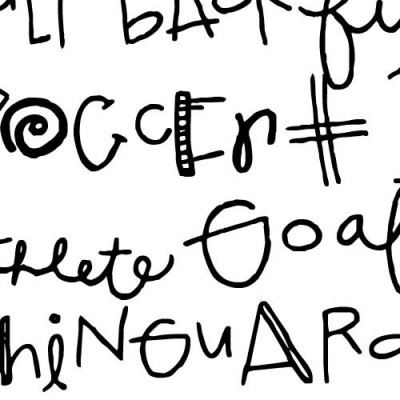 bAcK fu
SOCCEr #
thlete Goal
hiNGuARd